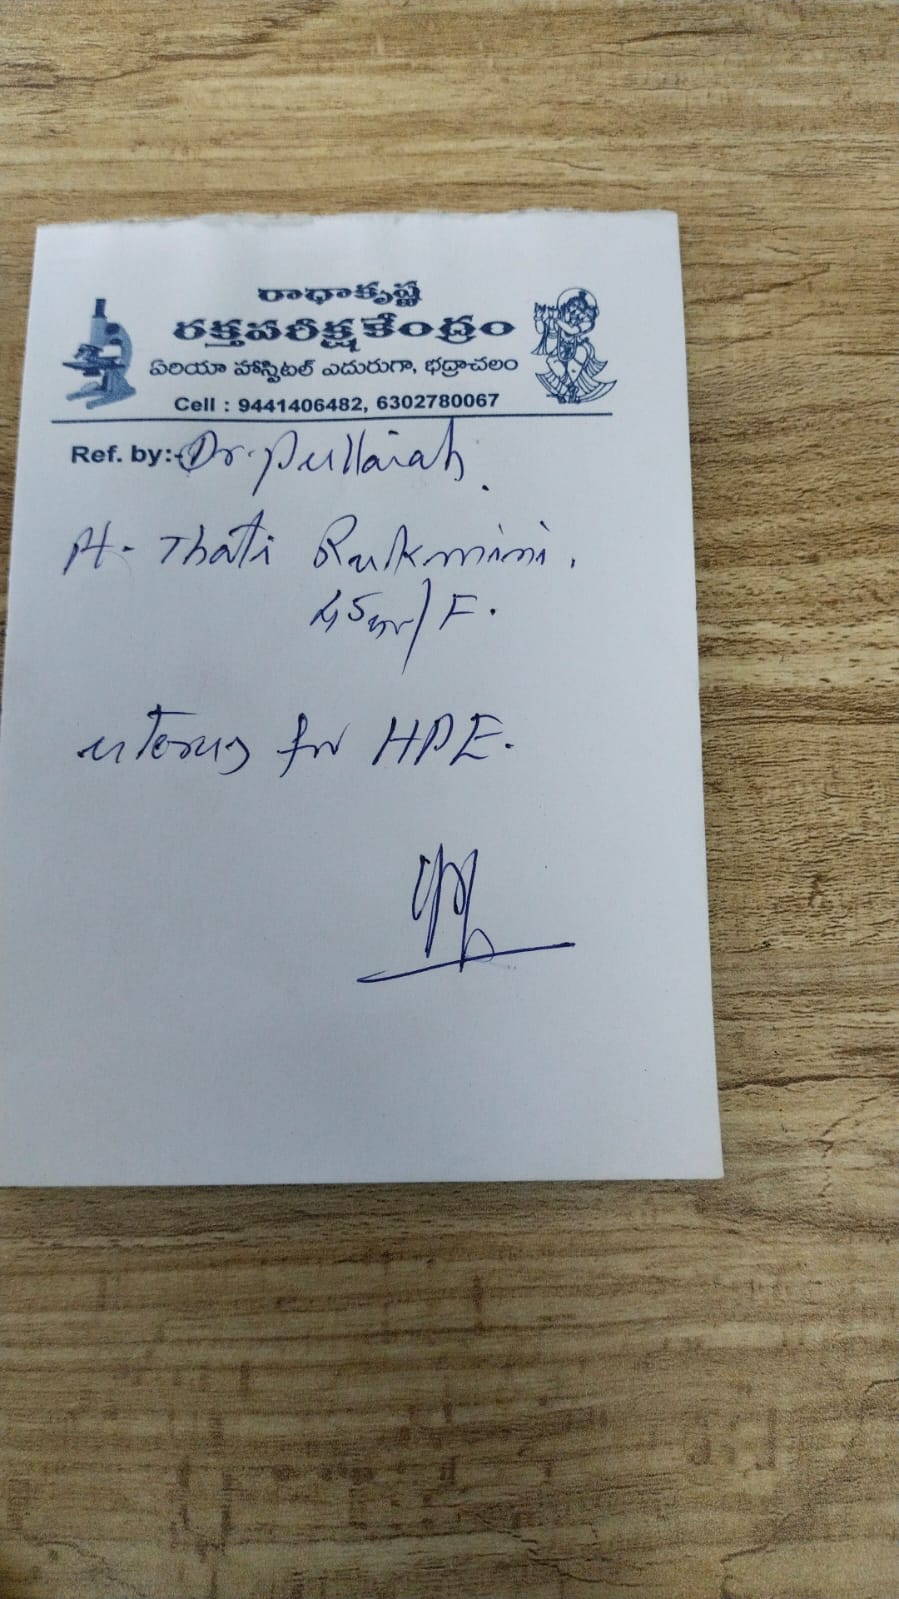 రాధాకృష్ణ
రక్తపరీక్ష కేంద్రం
ఏరియా హాస్పిటల్ ఎదురుగా, భద్రాచలం
Cell : 9441406482, 6302780067
Ref. by:- Dr. Pullaiah.
Pt - Thati Rukmini.
45yr/F.
uterus for HPE.